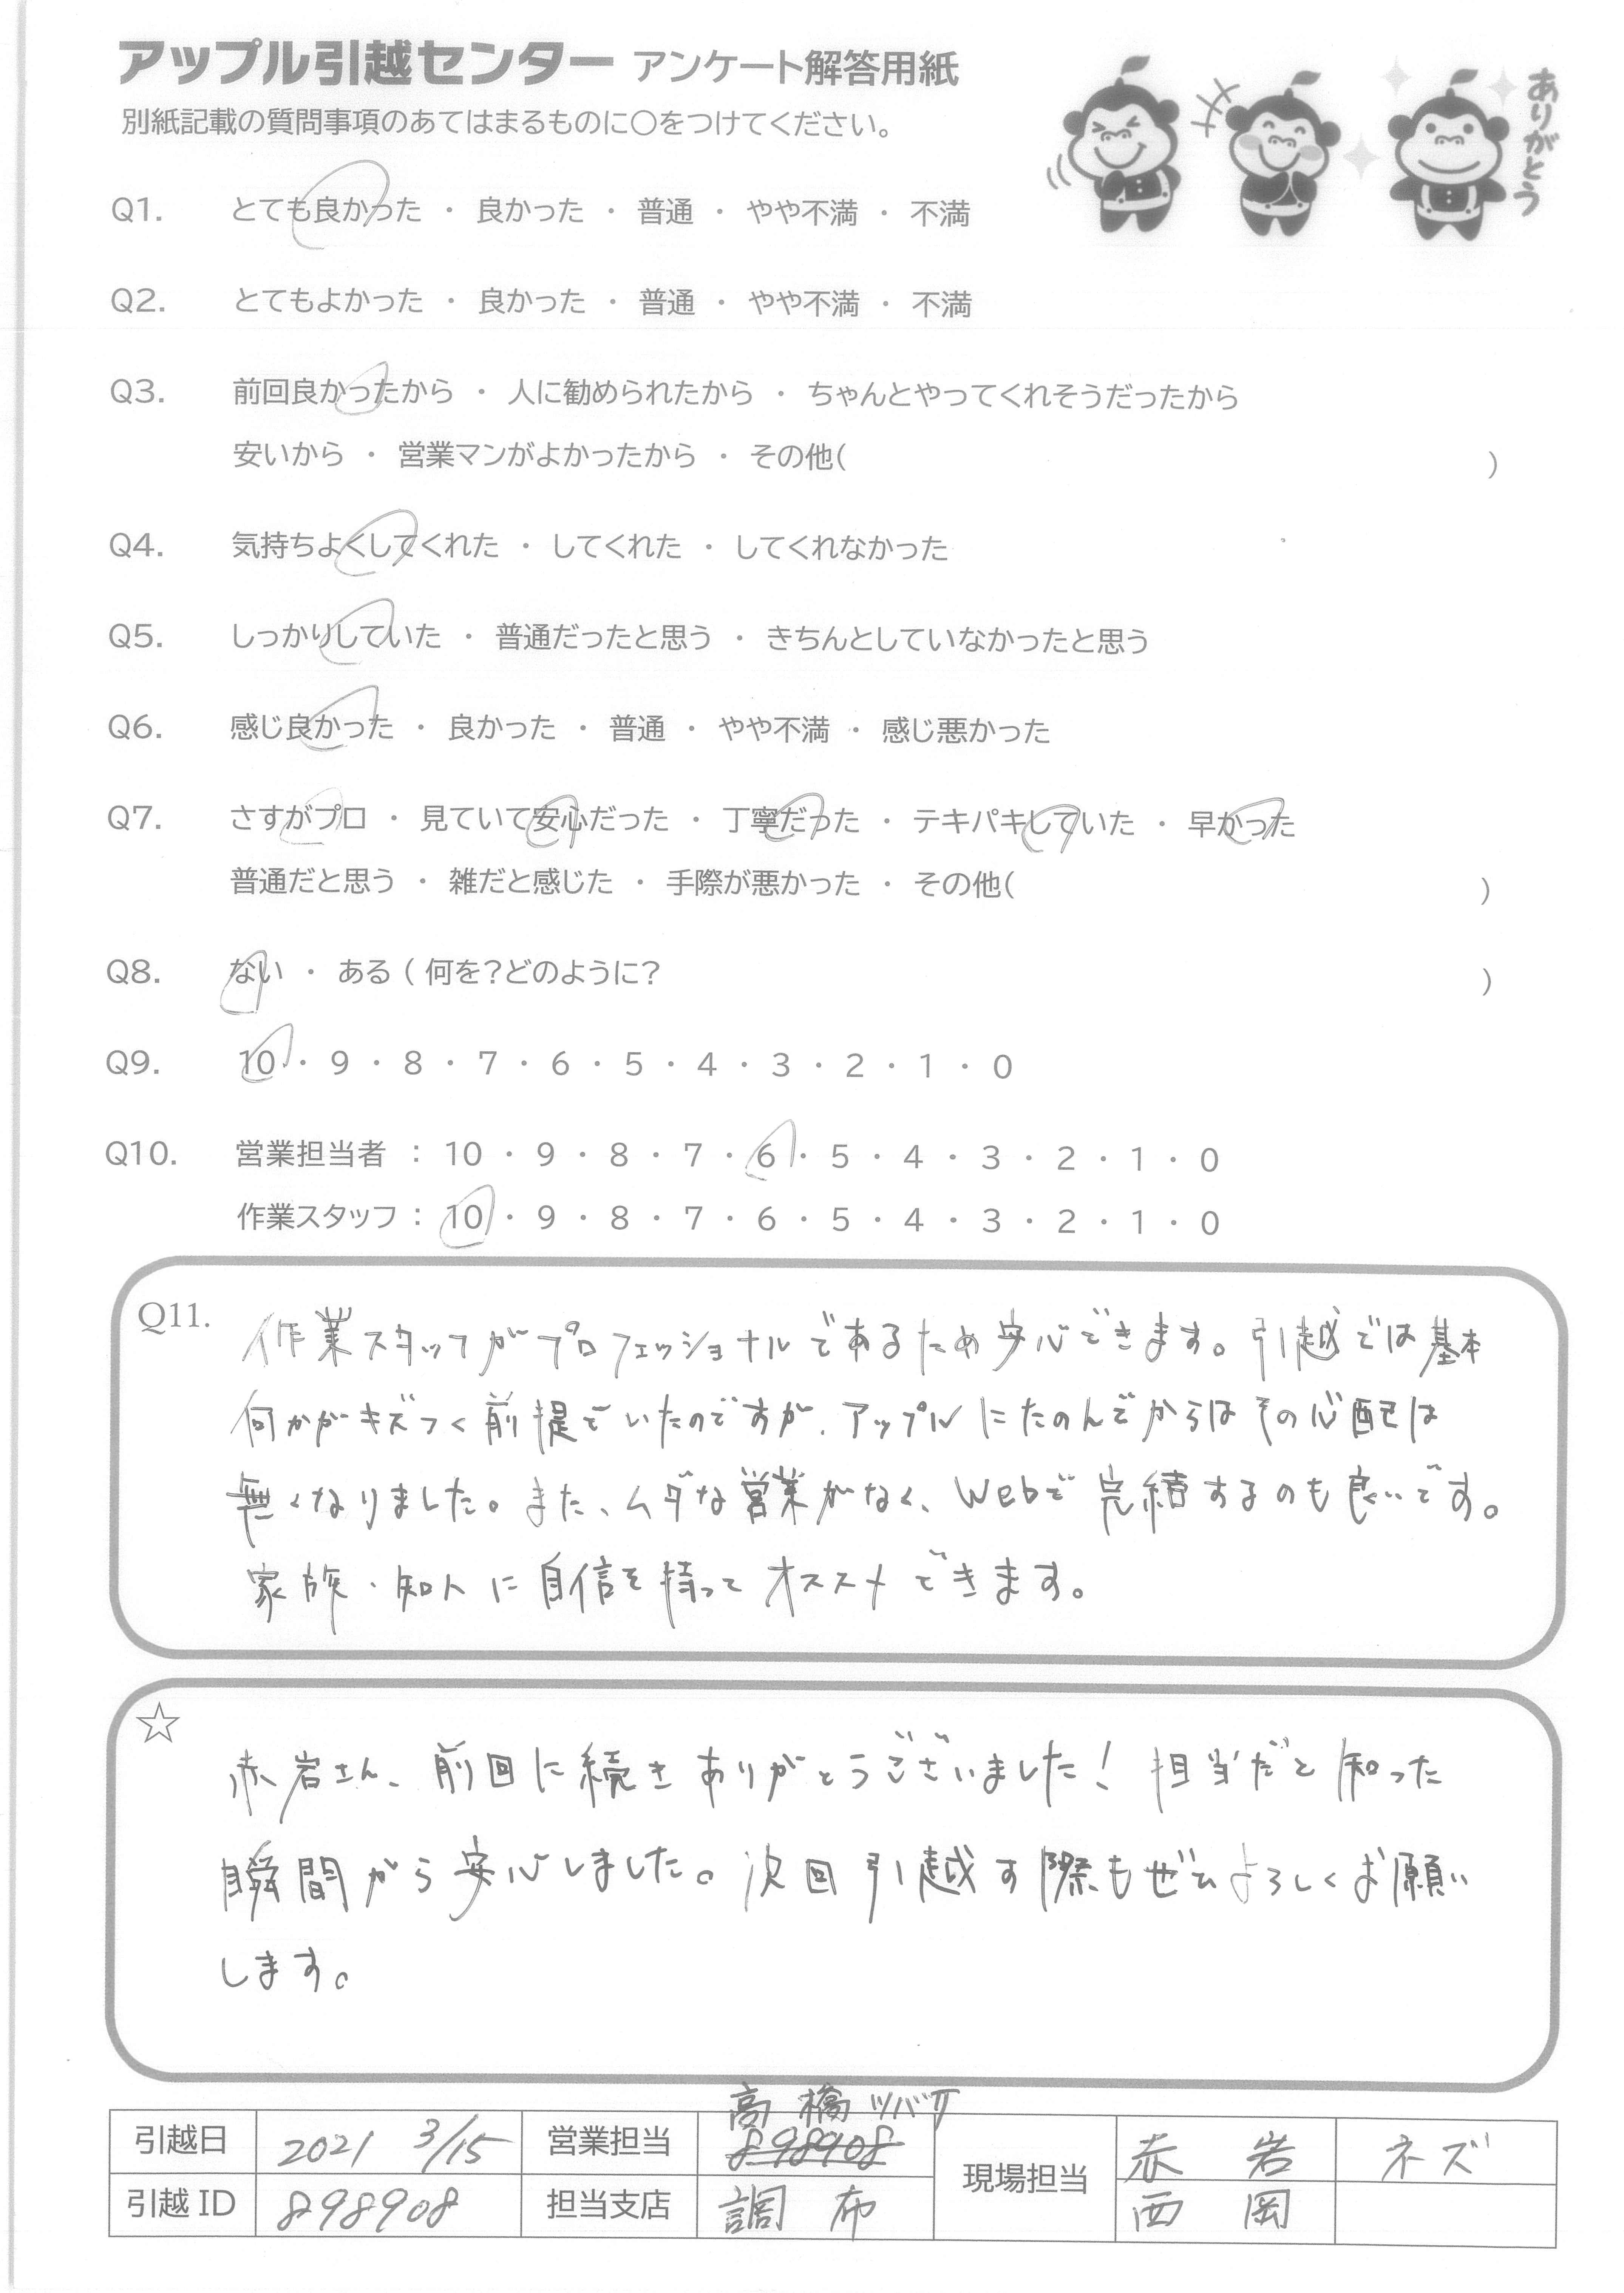 アップル引越センター アンケート解答用紙
別紙記載の質問事項のあてはまるものに○をつけてください。
ありがとう
Q1. とても良かった ・ 良かった ・ 普通 ・ やや不満 ・ 不満
Q2. とてもよかった ・ 良かった ・ 普通 ・ やや不満 ・ 不満
Q3. 前回良かったから ・ 人に勧められたから ・ ちゃんとやってくれそうだったから
安いから ・ 営業マンがよかったから ・ その他( )
Q4. 気持ちよくしてくれた ・ してくれた ・ してくれなかった
Q5. しっかりしていた ・ 普通だったと思う ・ きちんとしていなかったと思う
Q6. 感じ良かった ・ 良かった ・ 普通 ・ やや不満 ・ 感じ悪かった
Q7. さすがプロ ・ 見ていて安心だった ・ 丁寧だった ・ テキパキしていた ・ 早かった
普通だと思う ・ 雑だと感じた ・ 手際が悪かった ・ その他( )
Q8. ない ・ ある ( 何を?どのように? )
Q9. 10 ・ 9 ・ 8 ・ 7 ・ 6 ・ 5 ・ 4 ・ 3 ・ 2 ・ 1 ・ 0
Q10. 営業担当者 : 10 ・ 9 ・ 8 ・ 7 ・ 6 ・ 5 ・ 4 ・ 3 ・ 2 ・ 1 ・ 0
作業スタッフ : 10 ・ 9 ・ 8 ・ 7 ・ 6 ・ 5 ・ 4 ・ 3 ・ 2 ・ 1 ・ 0
Q11. 作業スタッフがプロフェッショナルであるため安心できます。引越では基本
何かがキズつく前提でいたのですが、アップルにたのんでからはその心配は
無くなりました。また、ムダな営業がなく、Webで完結するのも良いです。
家族・知人に自信を持ってオススメできます。
☆
赤岩さん、前回に続きありがとうございました! 担当だと知った
瞬間から安心しました。次回引越す際もぜひよろしくお願い
します。
高橋ツバサ
引越日 2021 3/15 営業担当 898908 現場担当 赤岩 ネズ
引越ID 898908 担当支店 調布 西岡